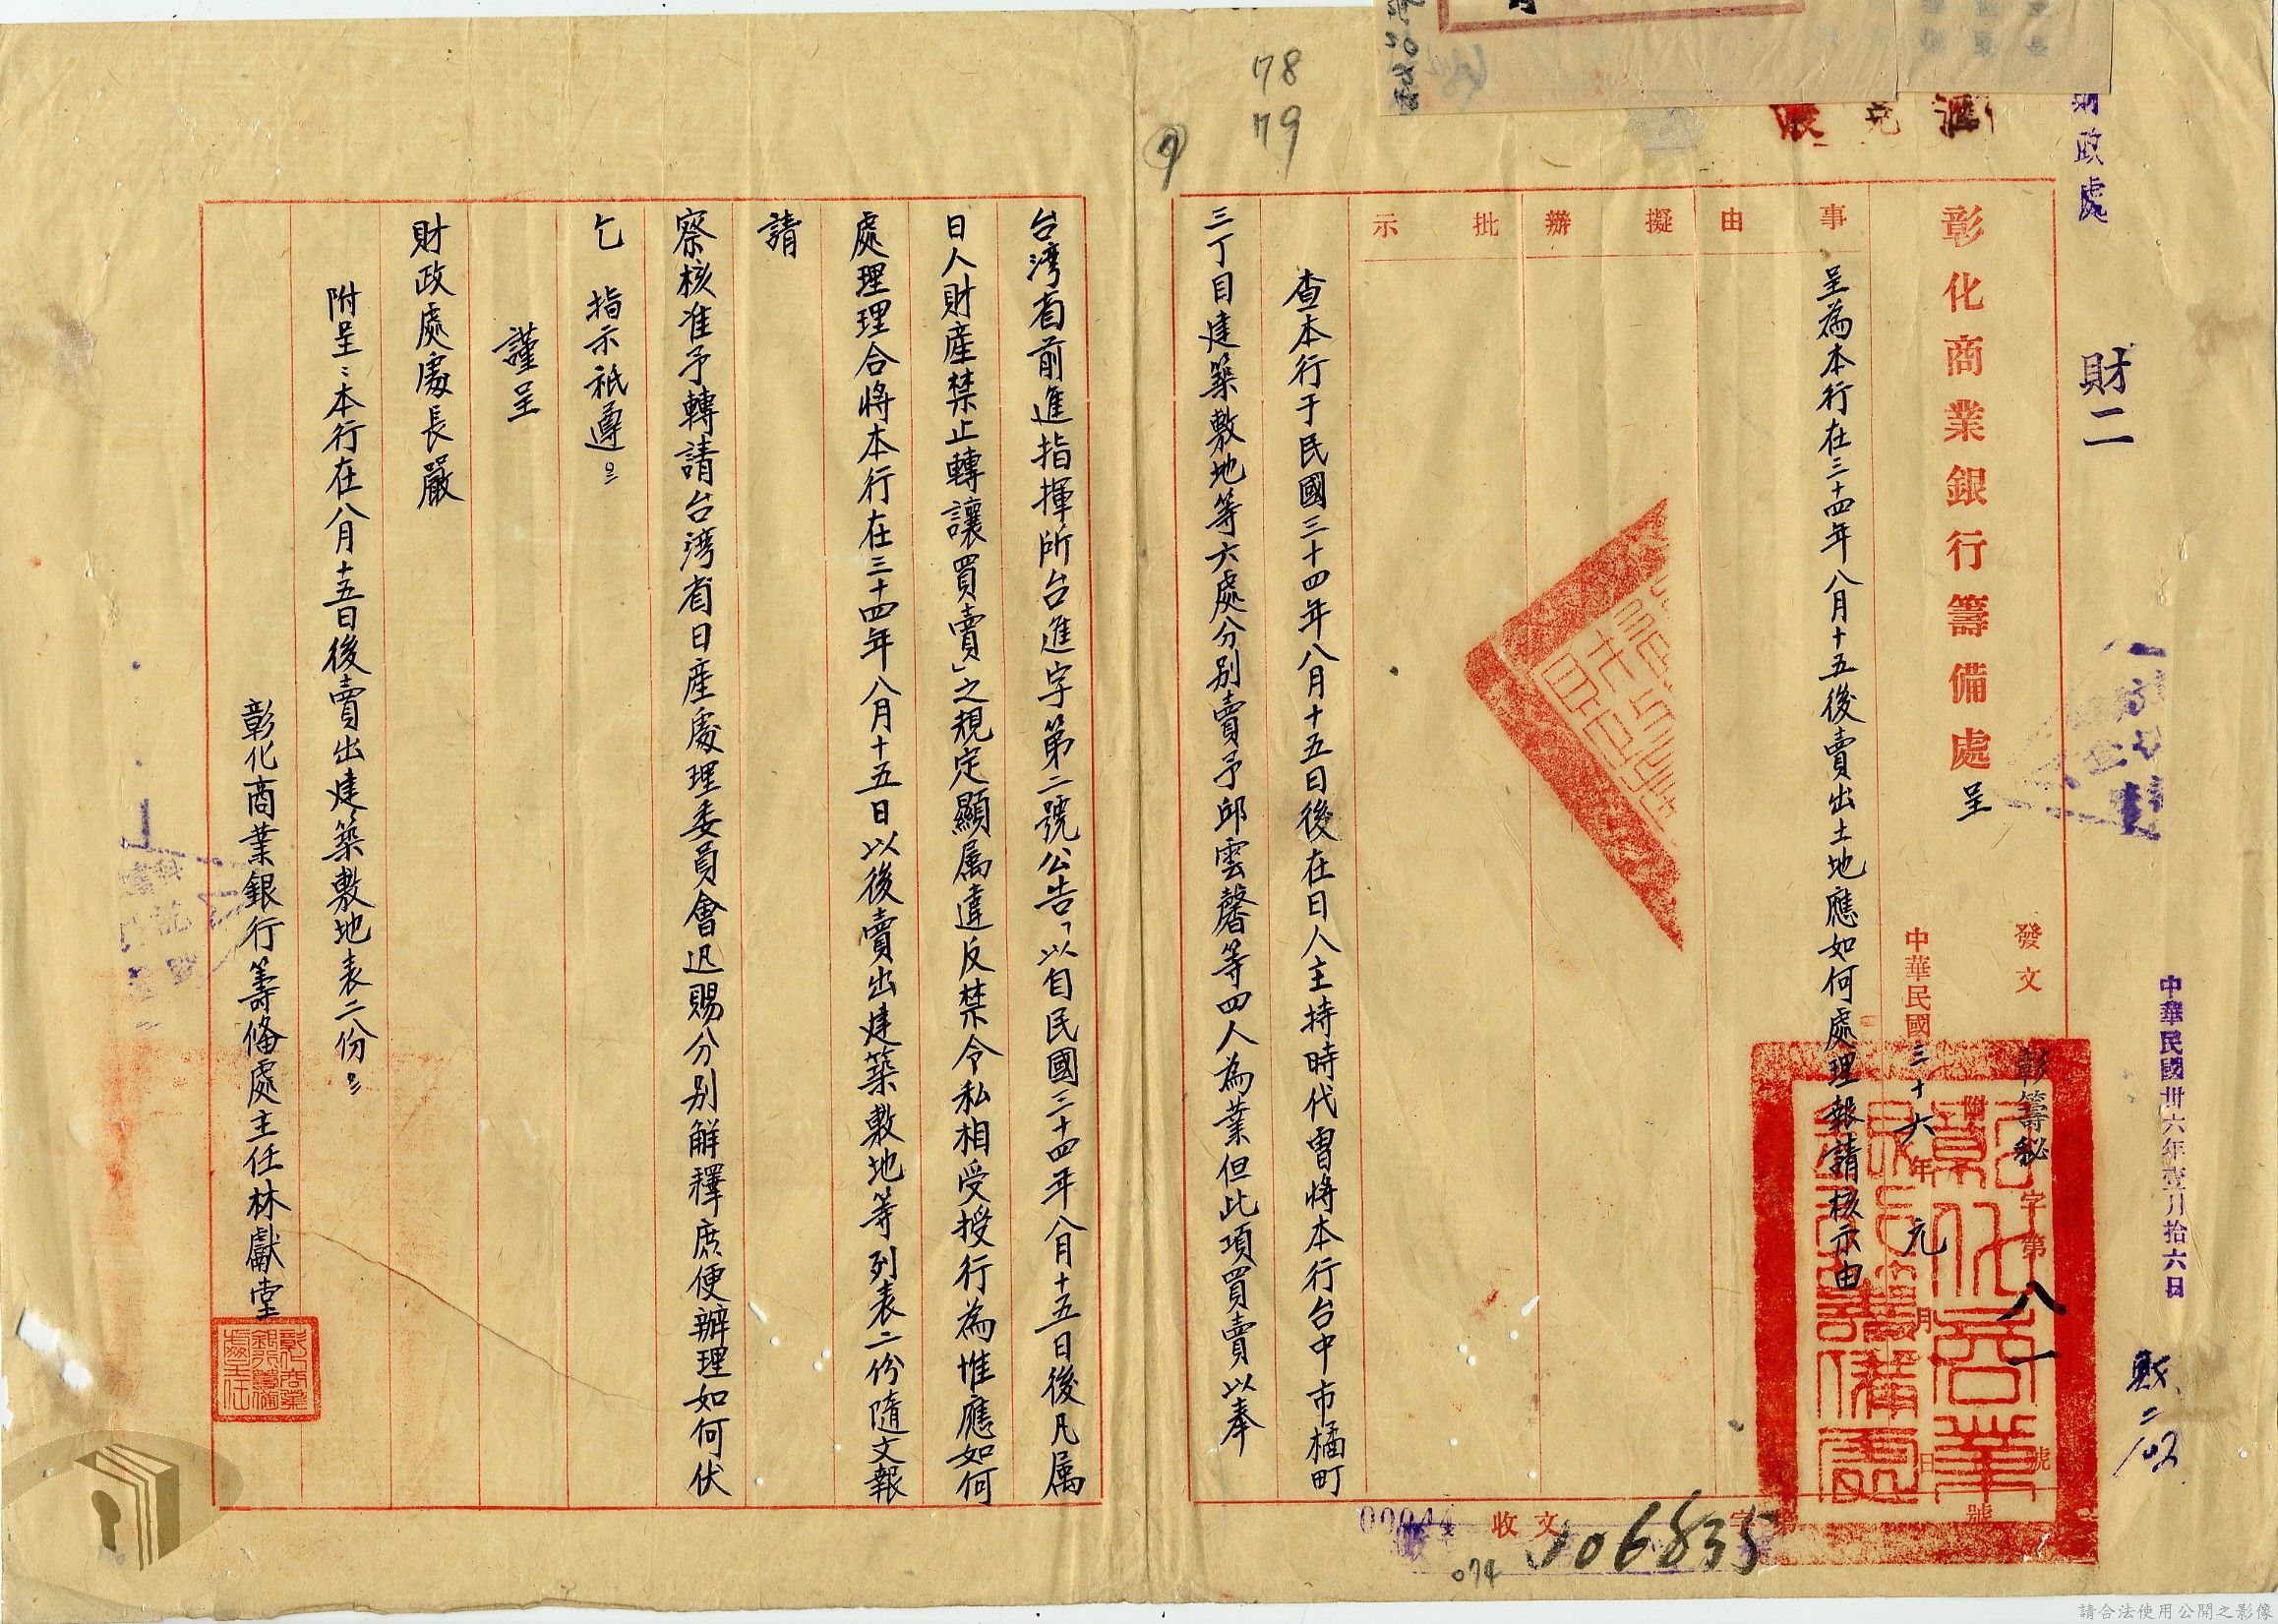 78
79
財政處
財二
中華民國卅六年壹月拾六日
彰化商業銀行籌備處呈
發文
彰籌秘字第八一號
中華民國三十六年元月 日
附
事由
擬辦
批示
呈為本行在三十四年八月十五後賣出土地應如何處理報請核示由
查本行于民國三十四年八月十五日後在日人主持時代曾將本行台中市橘町
三丁目建築敷地等六處分别賣予邱雲馨等四人為業但此項買賣以奉
台湾省前進指揮所台進字第二號公告「以自民國三十四年八月十五日後凡属
日人財產禁止轉讓買賣」之規定顯属違反禁令私相受授行為惟應如何
處理理合將本行在三十四年八月十五日以後賣出建築敷地等列表二份隨文報
請
察核准予轉請台湾省日產處理委員會迅賜分别解釋庶便辦理如何伏
乞 指示祇遵。
謹呈
財政處處長嚴
附呈:本行在八月十五日後賣出建築敷地表二份。
彰化商業銀行籌備處主任林獻堂
彰化商業銀行籌備處主任
收文 字第 號
106835
074
請合法使用公開之影像